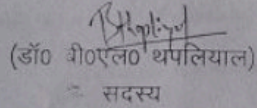 (डॉ० बी०एल० थपलियाल)
सदस्य